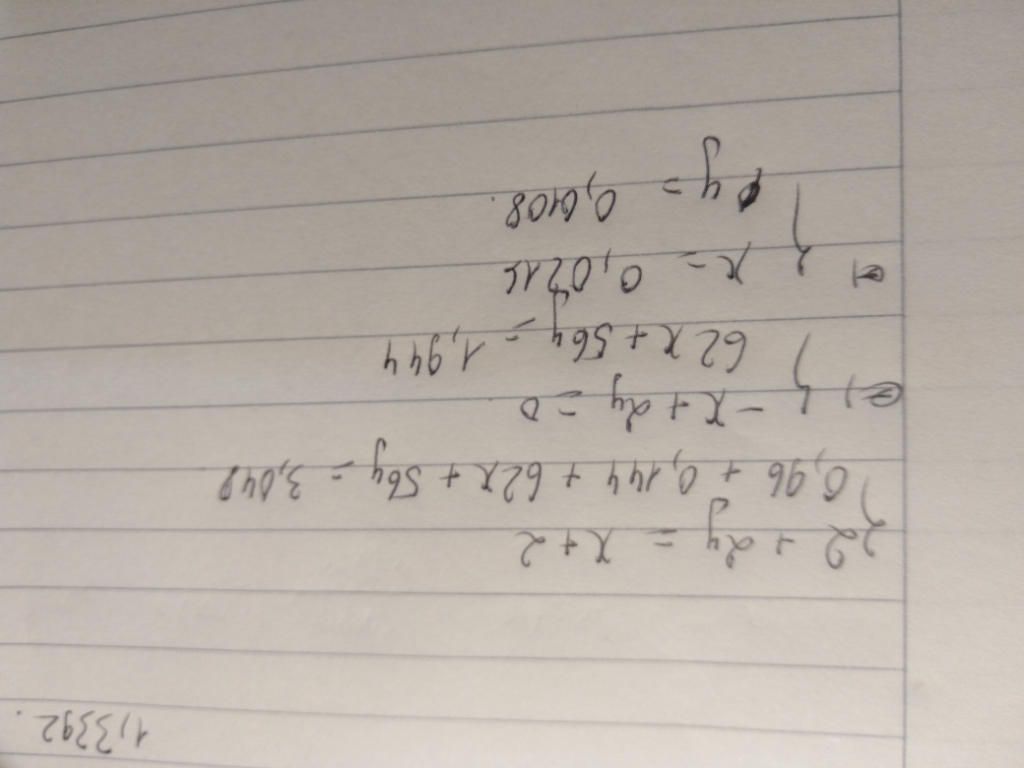 1,3392.
{ 2 + 2y = x + 2
0,96 + 0,144 + 62x + 56y = 3,048
⇔ { -x + 2y = 0
62x + 56y = 1,944
⇔ { x = 0,0216
y = 0,0108.